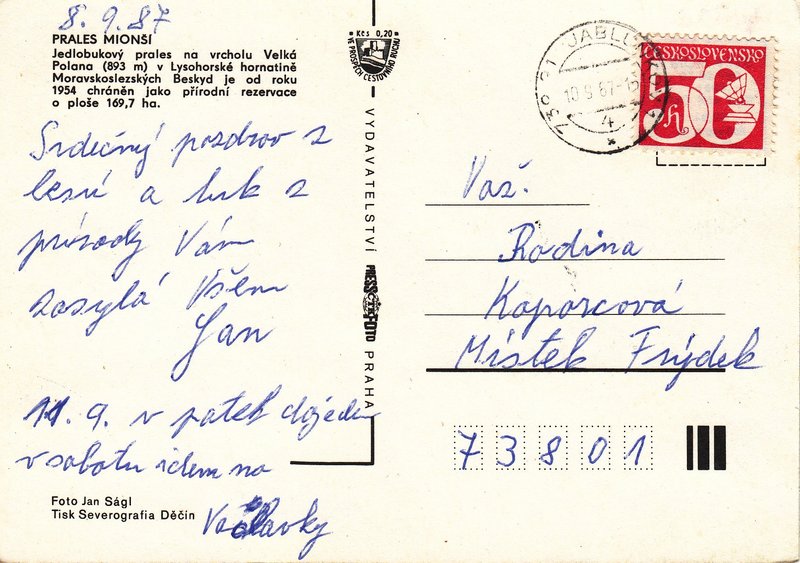 8. 9. 87
PRALES MIONSÍ
Jedlobukový prales na vrcholu Velká
Polana (893 m) v Lysohorské hornatině
Moravskoslezských Beskyd je od roku
1954 chráněn jako přírodní rezervace
o ploše 169,7 ha.
Srdečný pozdrov z
lesů a luk z
přírody Vám
zasylá Všem
Jan
11. 9. v patek dojedu
v sobotu idem na
Kčs 0,20
VE PROSPĚCH CESTOVNÍHO RUCHU
VYDAVATELSTVÍ PRESSFOTO PRAHA
Foto Jan Ságl
Tisk Severografia Děčín
739 91 JABLUNKOV
10.9.87-15
4
ČESKOSLOVENSKO
50 h
Važ.
Rodina
Koporcová
Místek Frýdek
73801